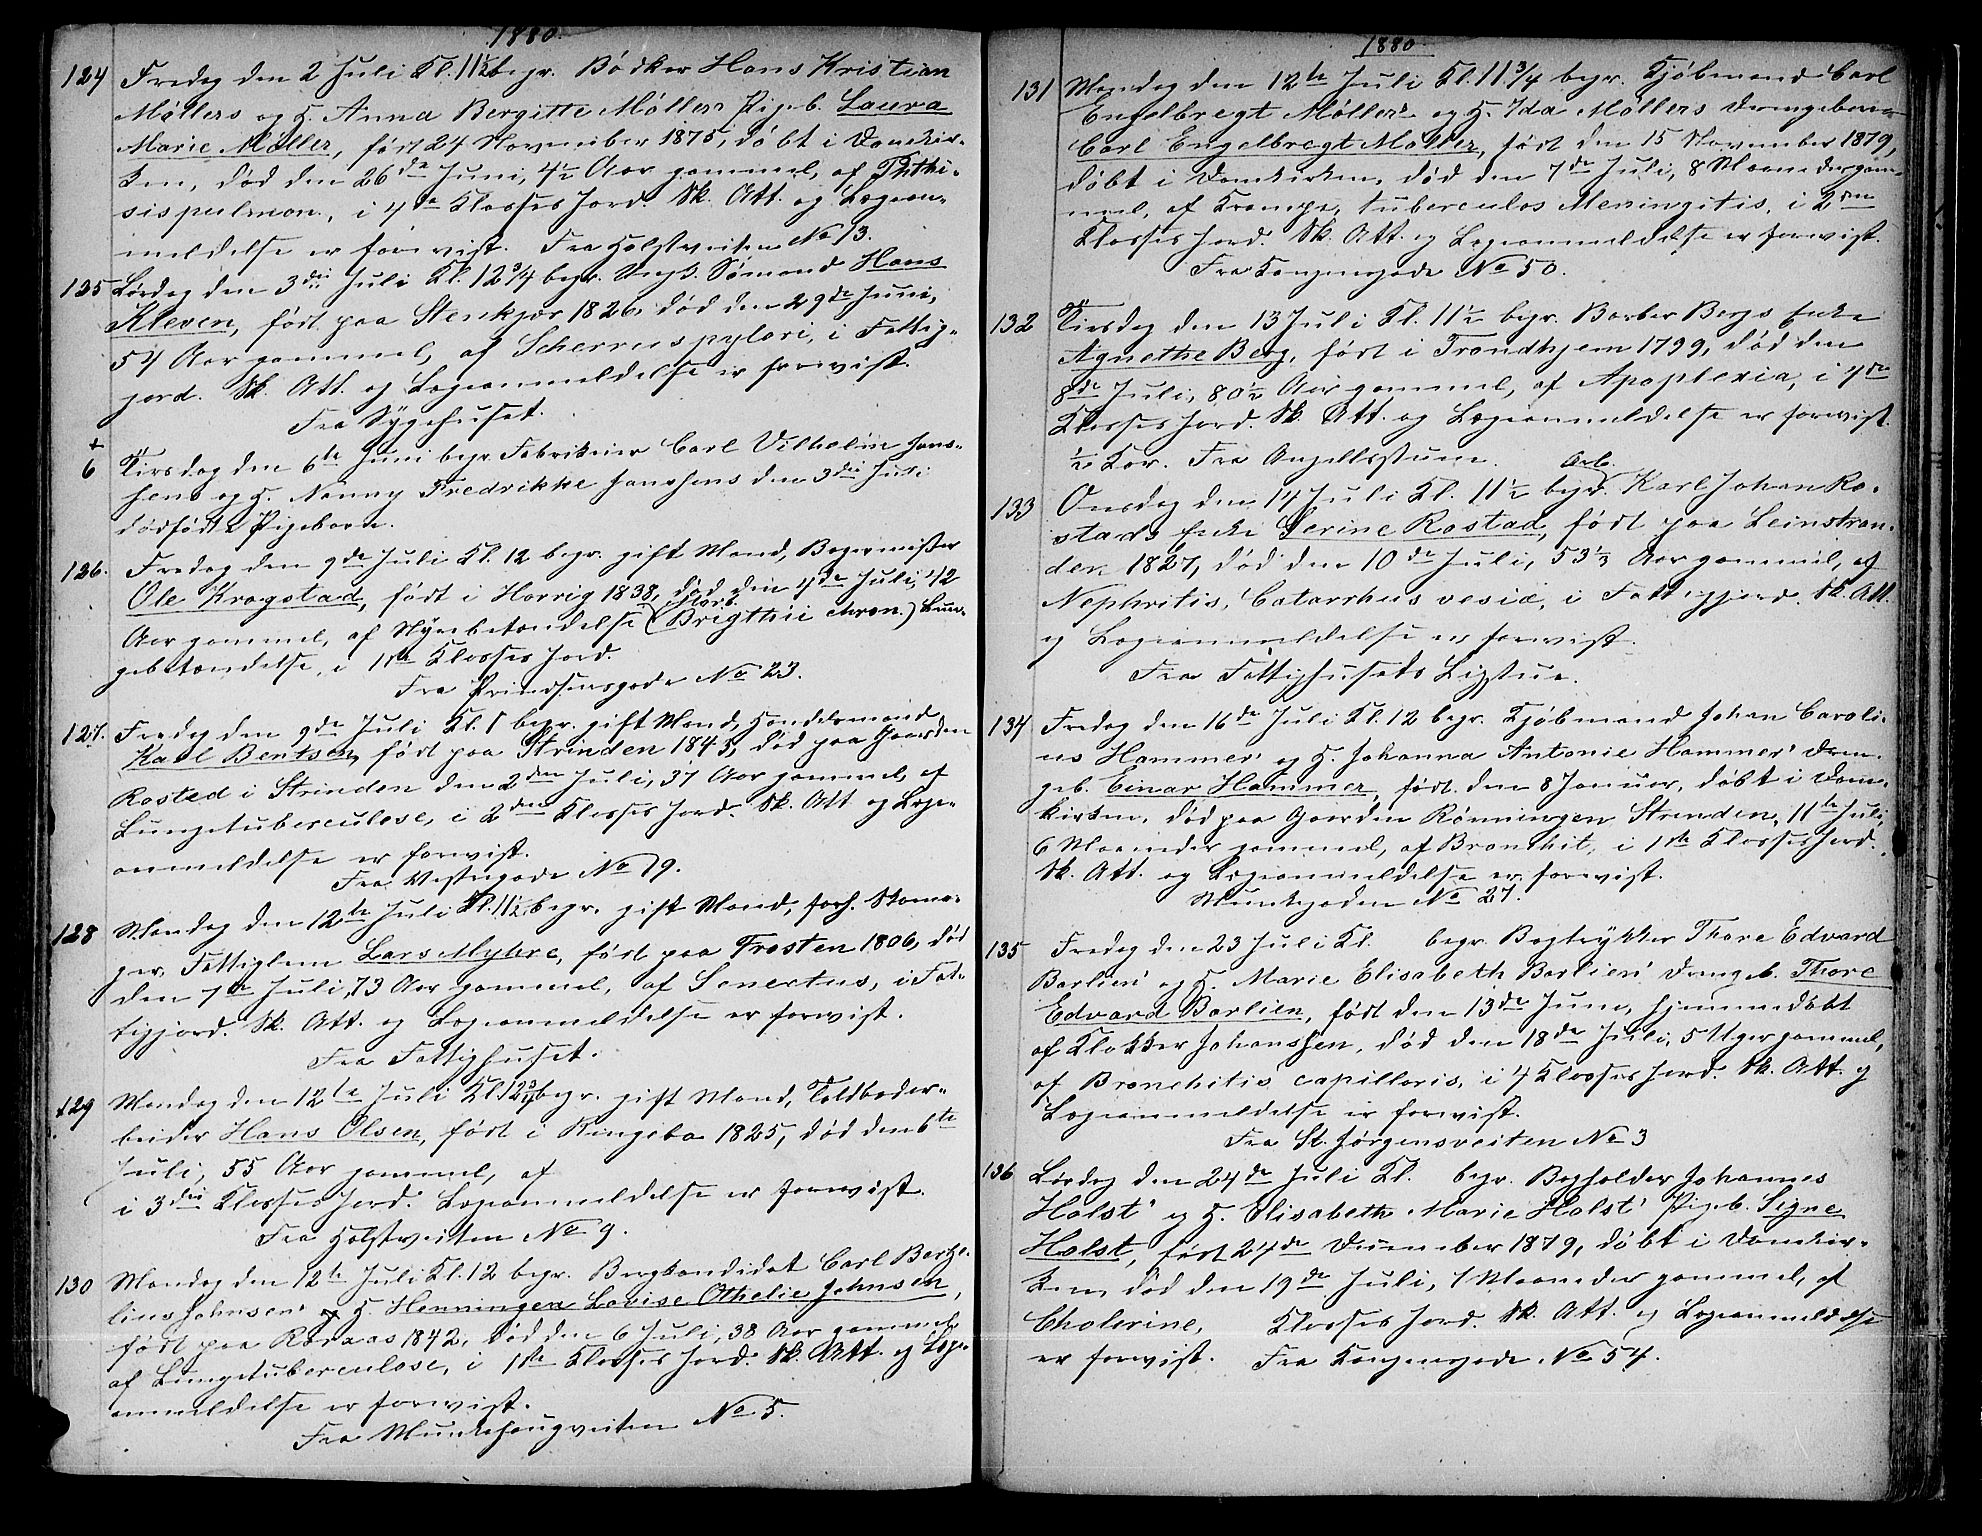 1880.
124 Fredag den 2 Juli Kl. 11½ begr. Bødker Hans Kristian
Møllers og H. Anna Bergitte Møllers Pigeb. Laura
Marie Møller, født 24 November 1875, døbt i Domkir-
ken, død den 26de Juni, 4½ Aar gammel, af Phthi-
sis pulmon., i 4de Klasses Jord. Sk. Att. og Lægean-
meldelse er forevist. Fra Holstveiten No 13.
125 Lørdag den 3die Juli Kl. 12¾ begr. Ungk. Sømand Hans
Kleven, født paa Stenkjær 1826, død den 29de Juni,
54 Aar gammel, af Scherrus pylori, i Fattig-
jord. Sk. Att. og Lægeanmeldelse er forevist.
Fra Sygehuset.
+
6 Tirsdag den 6te Juni begr. Fabrikeier Carl Vilhelm Jans-
sens og H. Nanny Fredrikke Janssens den 3die Juli
dødfødte Pigebarn.
126. Fredag den 9de Juli Kl. 12 begr. gift Mand, Bagermester
Ole Kragstad, født i Horrig 1838, død den 4de Juli, 42
Aar gammel, af Nyrebetændelse (Morb. Brigthii chron.) Lun-
gebetændelse, i 1ste Klasses Jord.
Fra Prindsensgade No 23.
127. Fredag den 9de Juli Kl. 1 begr. gift Mand, Handelsmand
Karl Bentsen, født paa Strinden 1843, død paa Gaarden
Rosted i Strinden den 2den Juli, 37 Aar gammel, af
Lungetuberculose, i 2den Klasses Jord. Sk. Att og Læge-
anmeldelse er forevist.
Fra Vestregade No 9.
128 Mandag den 12te Juli Kl. 11½ begr. gift Mand, forh. Skoma-
ger, Fattiglem Lars Myhre, født paa Frosten 1806, død
den 7de Juli, 73 Aar gammel, af Senectus, i Fat-
tigjord. Sk. Att. og Lægeanmeldelse er forevist.
Fra Fattighuset.
129 Mandag den 12te Juli Kl 12¾ begr. gift Mand, Toldbodar-
beider Hans Olsen, født i Ringebo 1825, død den 6te
Juli, 55 Aar gammel, af
i 3die Klasses Jord. Lægeanmeldelse er forevist.
Fra Holstveiten No 9.
130 Mandag den 12te Juli Kl. 12 begr. Bergkandidat Carl Barthe-
lius Johnsens og H. Henningen Lovise Othelie Johnsen,
født paa Røraas 1842, død den 6 Juli, 38 Aar gammel
af Lungetuberculose, i 1ste Klasses Jord. Sk. Att. og Læge-
anmeldelse er forevist.
Fra Munkhaugveiten No 5.
1880
131 Mandag den 12te Juli Kl. 11¾ begr. Kjøbmand Carl
Engelbregt Møllers og H. Ida Møllers Drengebarn
Carl Engelbregt Møller, født den 15 November 1879,
døbt i Domkirken, død den 7de Juli, 8 Maaneder gam-
mel, af Krampe, tuberculos Meningitis, i 2den
Klasses Jord. Sk. Att. og Lægeanmeldelse er forevist.
Fra Kongensgade No 50.
132 Tirsdag den 13 Juli Kl. 11½ begr. Barber Bergs Enke
Agnethe Berg, født i Trondhjem 1799, død den
8de Juli, 80½ Aar gammel, af Apoplexia, i 4de
Klasses Jord. Sk. Att. og Lægeanmeldelse er forevist.
½ Kor. Fra Angellsstuen.
133 Onsdag den 14 Juli Kl. 11½ begr. Arb. Karl Johan Ro-
stads Enke Serine Rostad, født paa Leinstran-
den 1827, død den 10de Juli, 53½ Aar gammel, af
Nephritis, Catarrhus vesiæ, i Fattigjord. Sk. Att.
og Lægeanmeldelse er forevist
Fra Fattighusets Ligstue.
134 Fredag den 16de Juli Kl. 12 begr. Kjøbmand Johan Caroli-
us Hammer' og H. Johanna Antonie Hammer' Dren-
geb. Einar Hammer, født den 8 Januar, døbt i Dom-
kirken, død paa Gaarden Rønningen Strinden, 11te Juli,
6 Maaneder gammel, af Bronchit, i 1ste Klasses Jord.
Sk. Att. og Lægeanmeldelse er forevist.
Munkgaden No 27.
135 Fredag den 23 Juli Kl. begr. Bogtrykker Thore Edvard
Barlien' og H. Marie Elisabeth Barlien' Drengeb. Thore
Edvard Barlien, født den 13de Juni, hjemmedøbt
af Klokker Johanssen, død den 18de Juli, 5 Uger gammel,
af Bronchitis capillaris, i 4 Klasses Jord. Sk. Att. og
Lægeanmeldelse er forevist.
Fra St. Jørgensveiten No 3
136 Lørdag den 24de Juli Kl. begr. Bogholder Johannes
Holst' og H. Elisabeth Marie Holst' Pigeb. Signe
Holst, født 24de December 1879, døbt i Domkir-
ken, død den 19de Juli, 7 Maaneder gammel, af
Cholerine, Klasses Jord. Sk. Att. og Lægeanmeldelse
er forevist. Fra Kongensgade No 54.